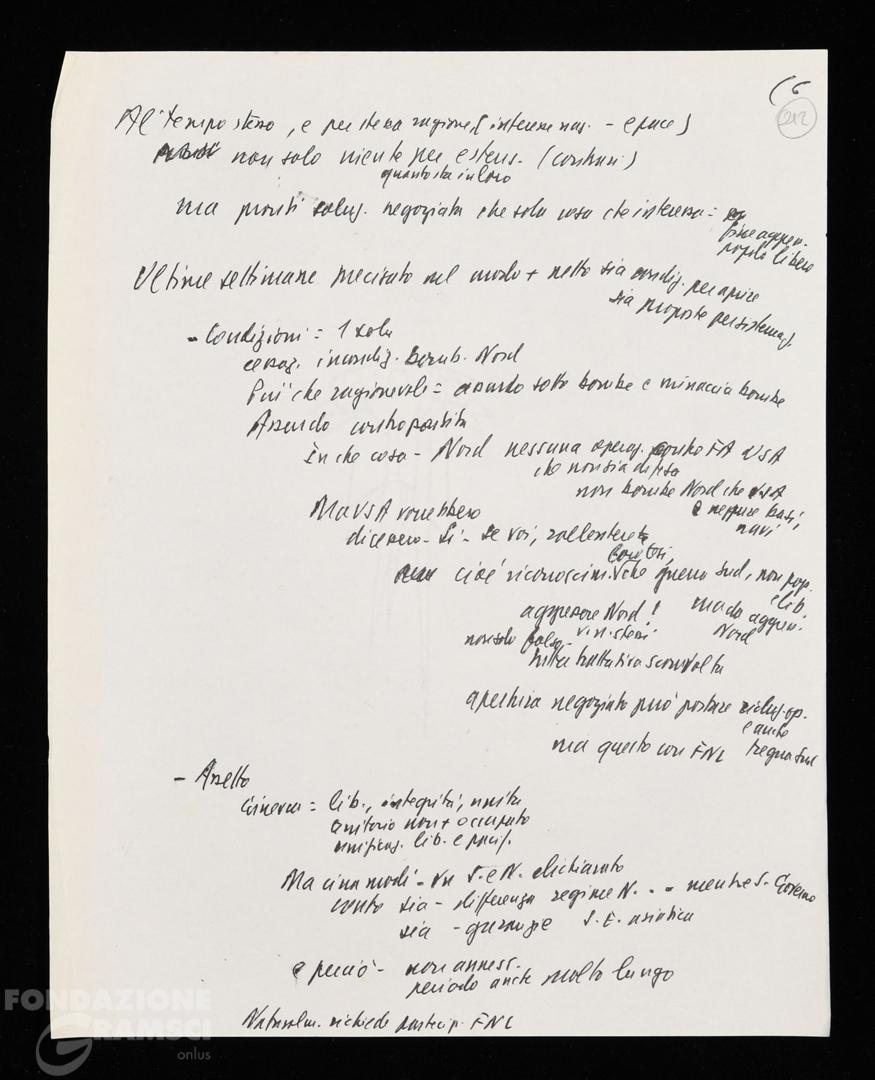 (6
212
Al tempo stesso, e per stessa ragione (interesse naz. - e pace)
non solo niente per estens. (contrari)
quanto sta in loro
ma pronti soluz. negoziata che sola cosa che interessa =
fine aggress.
popolo libero
Ultime settimane precisato nel modo + netto sia condiz. per aprire
sia proposte per sistemaz.
- Condizioni = 1 sola
cessaz. incondiz. bomb. Nord
Più che ragionevole = assurdo sotto bombe e minaccia bombe
Assurdo contropartita
In che cosa - Nord nessuna operaz. contro FA USA
che non sia difesa
non bombe Nord che USA
e neppure basi,
navi
Ma USA vorrebbero
dicessero - Sì - se voi,
cioè riconoscim. che guerra Sud, non pop.
e lib.
aggressore Nord! ma da aggress.
Nord
non solo falso
tutta trattativa sconvolta
apertura negoziato può portare op.
e anche
ma questo con FNL tregua Sud
- Assetto
Ginevra = lib., integrità, unità
territorio non + occupato
unificaz. lib. e pacif.
Maci son modi - S. e N. dichiarato
conto sia - differenza regime N. - - mentre S. Governo
sia - S. E. asiatico
e perciò - non anness.
periodo anche molto lungo
Naturalm. richiede partecip. FNL
FONDAZIONE
GRAMSCI
onlus